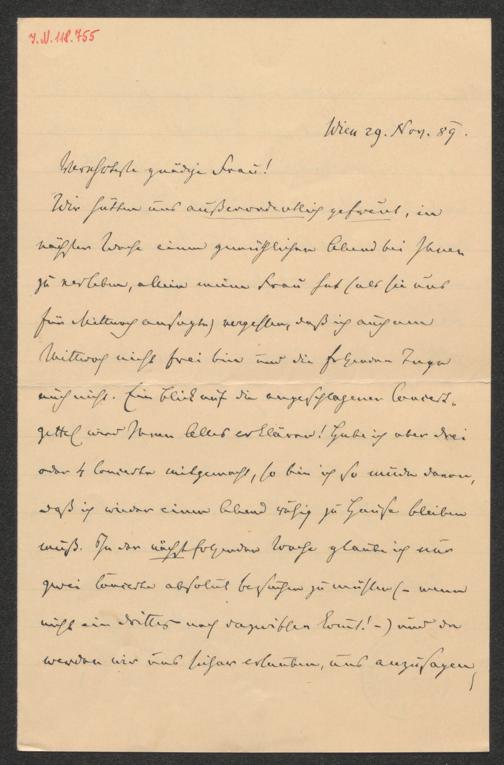 I.N. 118.755
Wien 29. Nov. 89.
Verehrteste gnädige Frau!
Wir hätten uns außerordentlich gefreut, in
nächster Woche einen gemüthlichen Abend bei Ihnen
zu verleben, allein meine Frau hat (als sie uns
für Mittwoch ansagte) vergessen, daß ich auch am
Mittwoch nicht frei bin und die folgenden Tage
auch nicht. Ein Blick auf die angeschlagenen Concert-
zettel wird Ihnen Alles erklären! Habe ich aber drei
oder 4 Concerte mitgemacht, so bin ich so müde davon,
daß ich wieder einen Abend ruhig zu Hause bleiben
muß. In der nächstfolgenden Woche glaube ich nur
zwei Concerte absolut besuchen zu müssen (– wenn
nicht ein drittes noch dazwischen komt! –) und da
werden wir uns sicher erlauben, uns anzusagen,